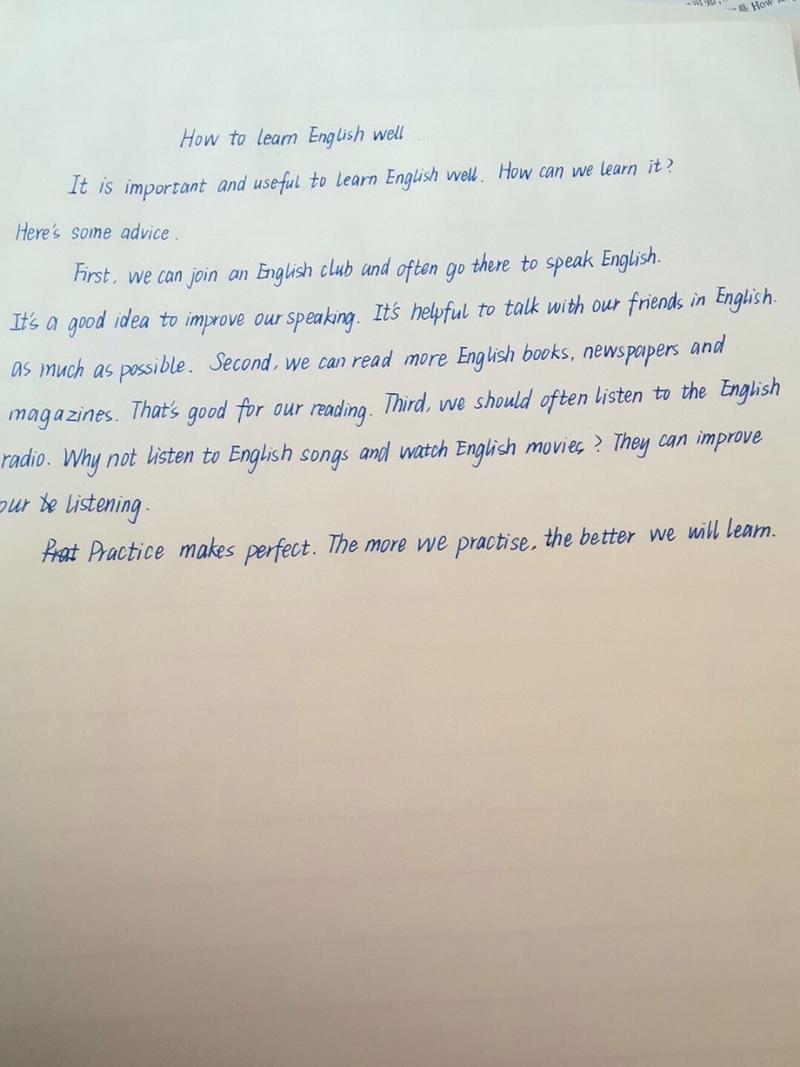 How
How to learn English well
It is important and useful to learn English well. How can we learn it?
Here's some advice.
First, we can join an English club and often go there to speak English.
It's a good idea to improve our speaking. It's helpful to talk with our friends in English.
as much as possible. Second, we can read more English books, newspapers and
magazines. That's good for our reading. Third, we should often listen to the English
radio. Why not listen to English songs and watch English movies? They can improve
our listening.
Practice makes perfect. The more we practise, the better we will learn.